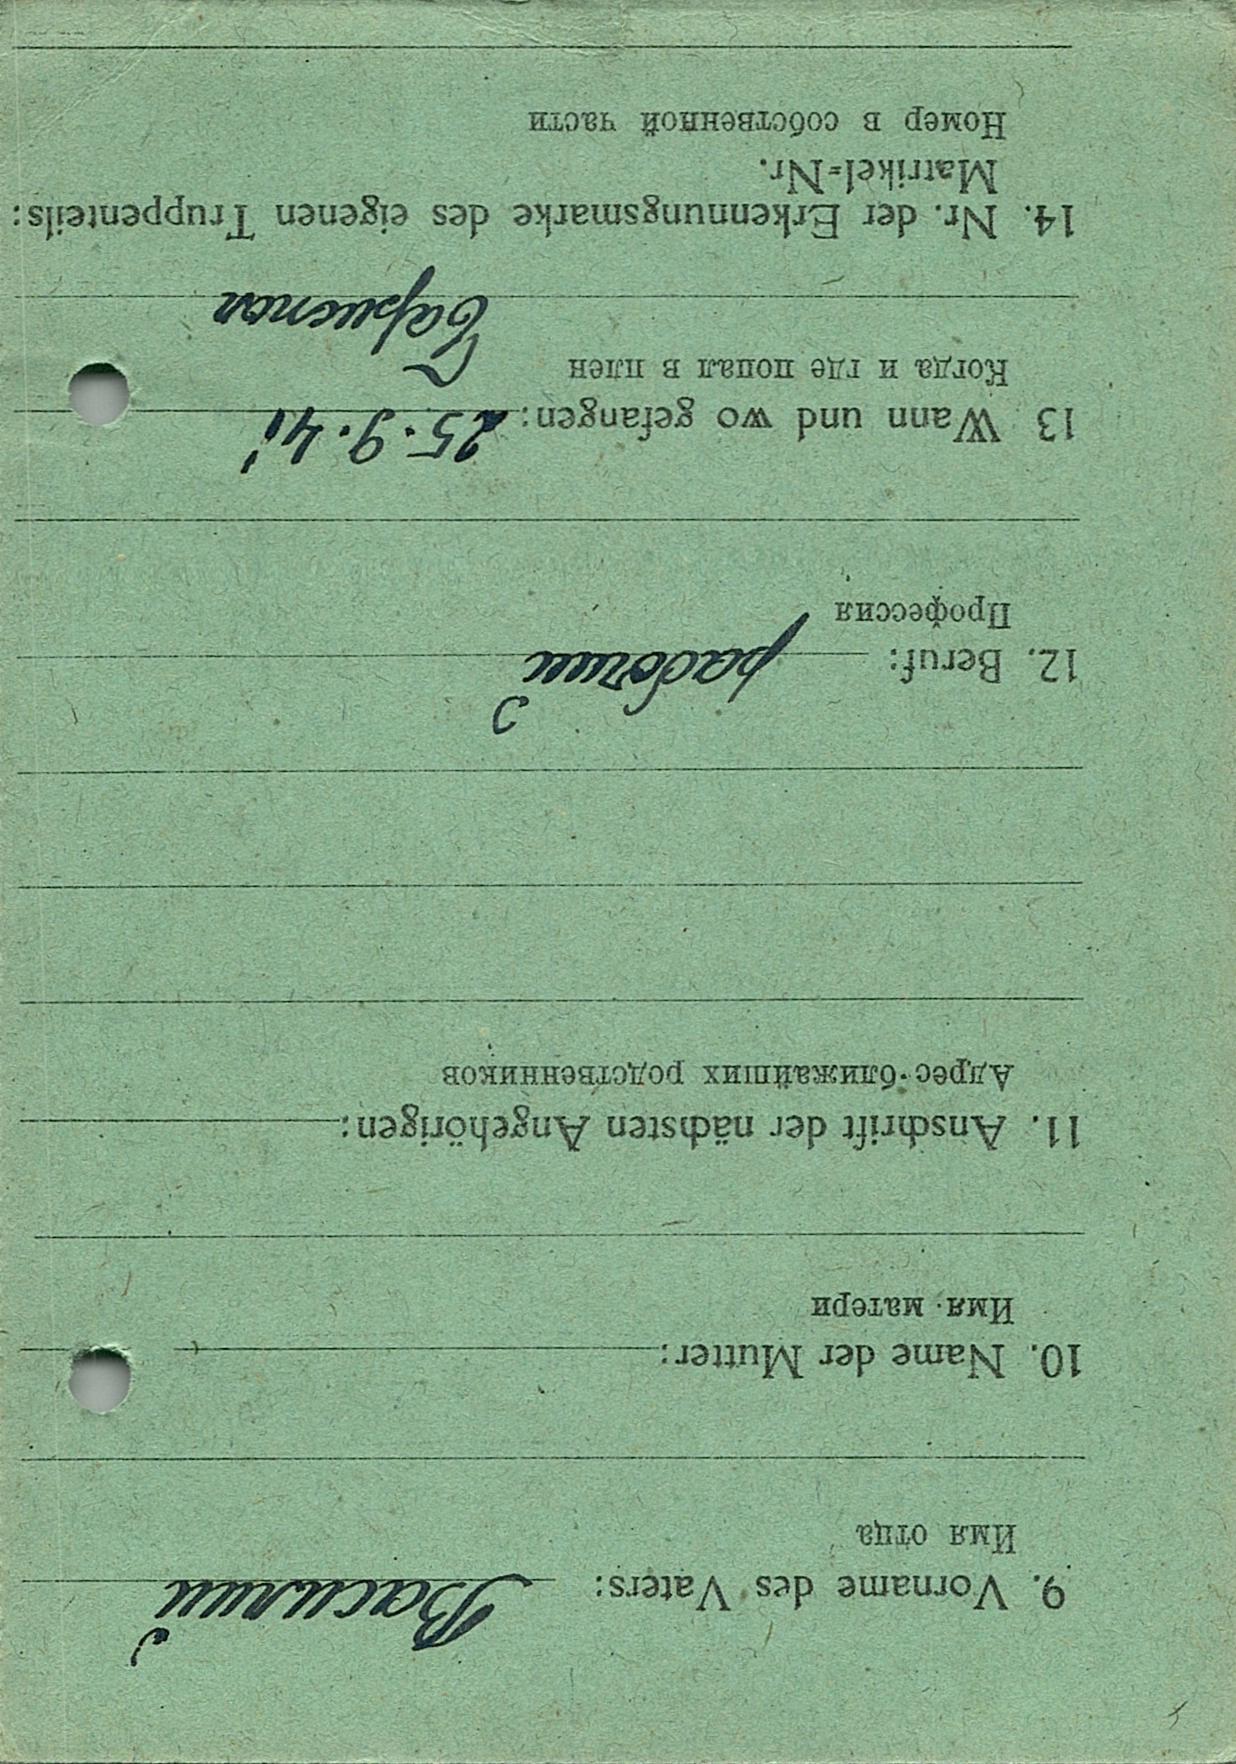 9. Vorname des Vaters: Василий
Имя отца
10. Name der Mutter:
Имя матери
11. Anschrift der nächsten Angehörigen:
Адрес ближайших родственников
12. Beruf: рабочий
Профессия
13 Wann und wo gefangen: 25.9.41
Когда и где попал в плен
Барисполь
14. Nr. der Erkennungsmarke des eigenen Truppenteils:
Matrikel-Nr.
Номер в собственной части